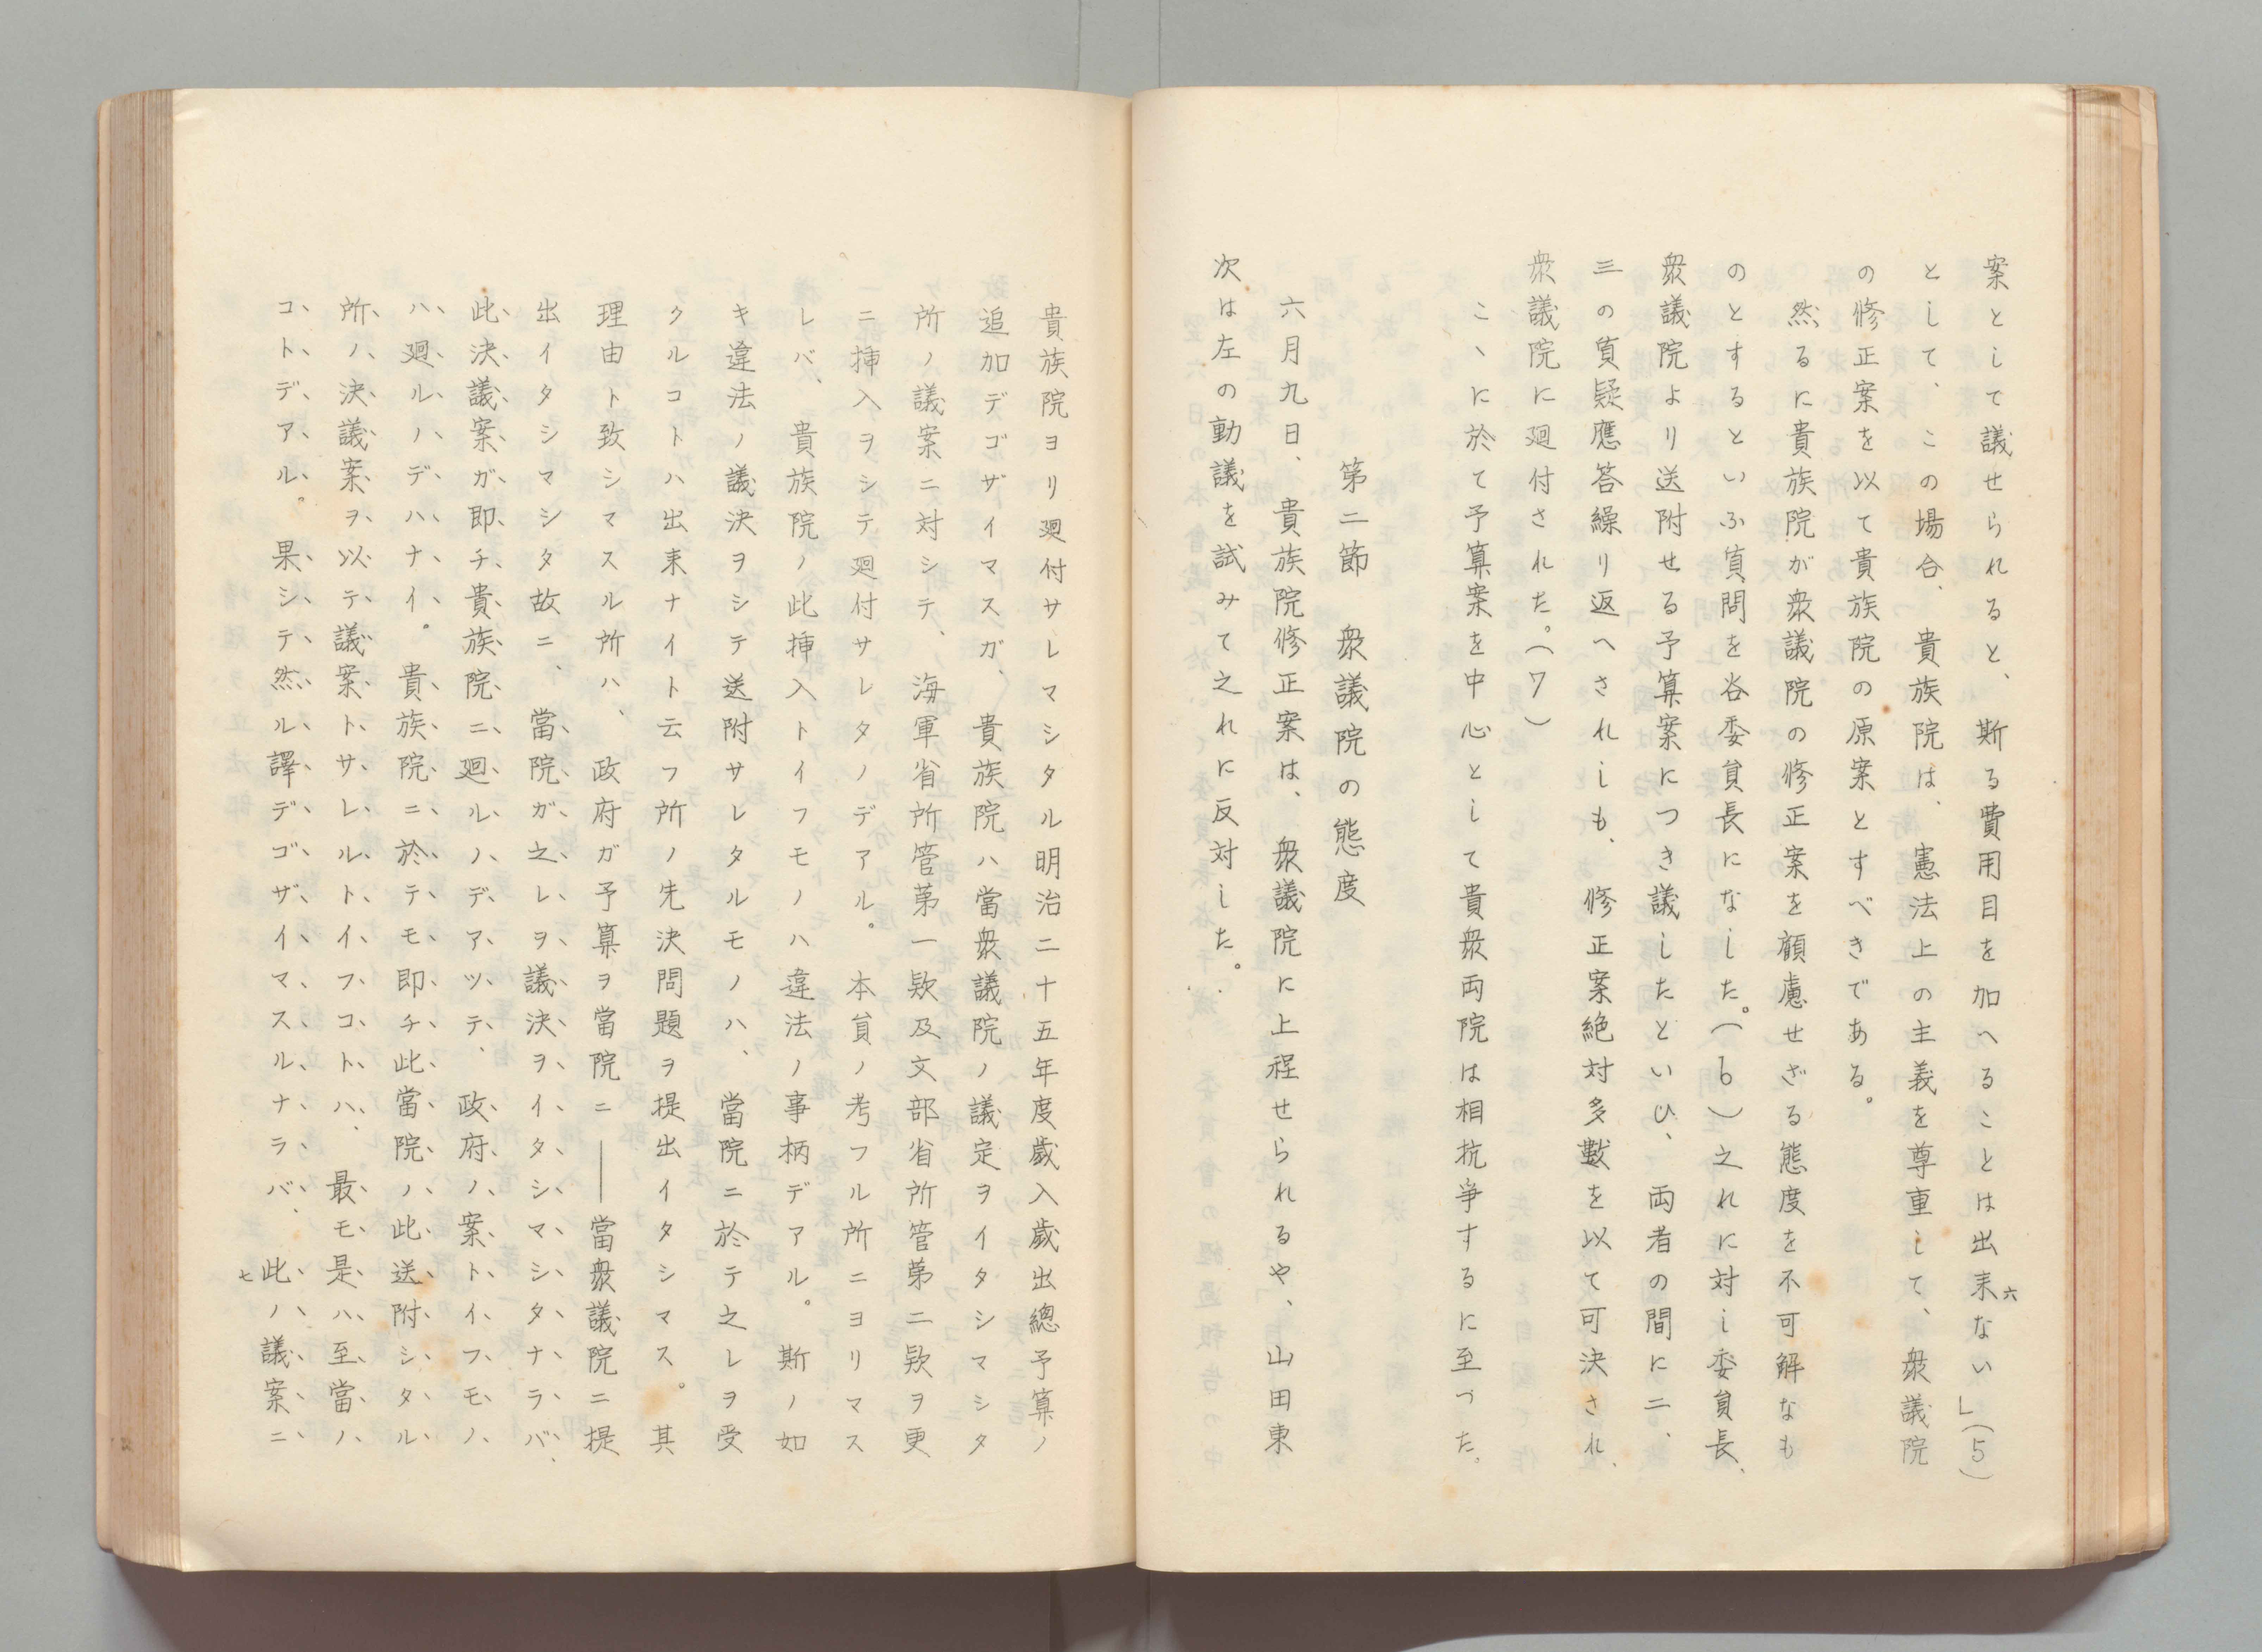 案として議せられると、斯る費用目を加へることは出来ない」(5)
として、この場合、貴族院は、憲法上の主義を尊重して、衆議院
の修正案を以て貴族院の原案とすべきである。
然るに貴族院が衆議院の修正案を顧慮せざる態度を不可解なも
のとするといふ質問を谷委員長になした。(6)之れに対し委員長、
衆議院より送附せる予算案につき議したといひ、両者の間に二、
三の質疑應答繰り返へされしも、修正案絶対多數を以て可決され、
衆議院に廻付された。(7)
こゝに於て予算案を中心として貴衆両院は相抗争するに至つた。
第二節 衆議院の態度
六月九日、貴族院修正案は、衆議院に上程せられるや、山田東
次は左の動議を試みて之れに反対した。
六
貴族院ヨリ廻付サレマシタル明治二十五年度歳入歳出總予算ノ
追加デゴザイマスガ、貴族院ハ當衆議院ノ議定ヲイタシマシタ
所ノ議案ニ対シテ、海軍省所管第一欵及文部省所管第二欵ヲ更
ニ挿入ヲシテ廻付サレタノデアル。本員ノ考フル所ニヨリマス
レバ、貴族院ノ此挿入トイフモノハ違法ノ事柄デアル。斯ノ如
キ違法ノ議決ヲシテ送附サレタルモノハ、當院ニ於テ之レヲ受
クルコトハ出来ナイト云フ所ノ先決問題ヲ提出イタシマス。其
理由ト致シマスル所ハ、政府ガ予算ヲ當院ニ――當衆議院ニ提
出イタシマシタ故ニ、當院ガ之レヲ議決ヲイタシマシタナラバ、
此決議案ガ即チ貴族院ニ廻ルノデアツテ、政府ノ案トイフモノ
ハ廻ルノデハナイ。貴族院ニ於テモ即チ此當院ノ此送附シタル
所ノ決議案ヲ以テ議案トサレルトイフコトハ、最モ是ハ至當ノ
コトデアル。果シテ然ル譯デゴザイマスルナラバ、此ノ議案ニ
七